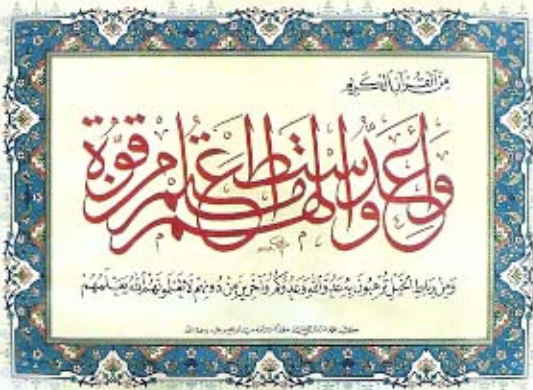 من القرآن الكريم
وأعدوا لهم ما استطعتم من قوة
ومن رباط الخيل ترهبون به عدو الله وعدوكم وآخرين من دونهم لا تعلمونهم الله يعلمهم